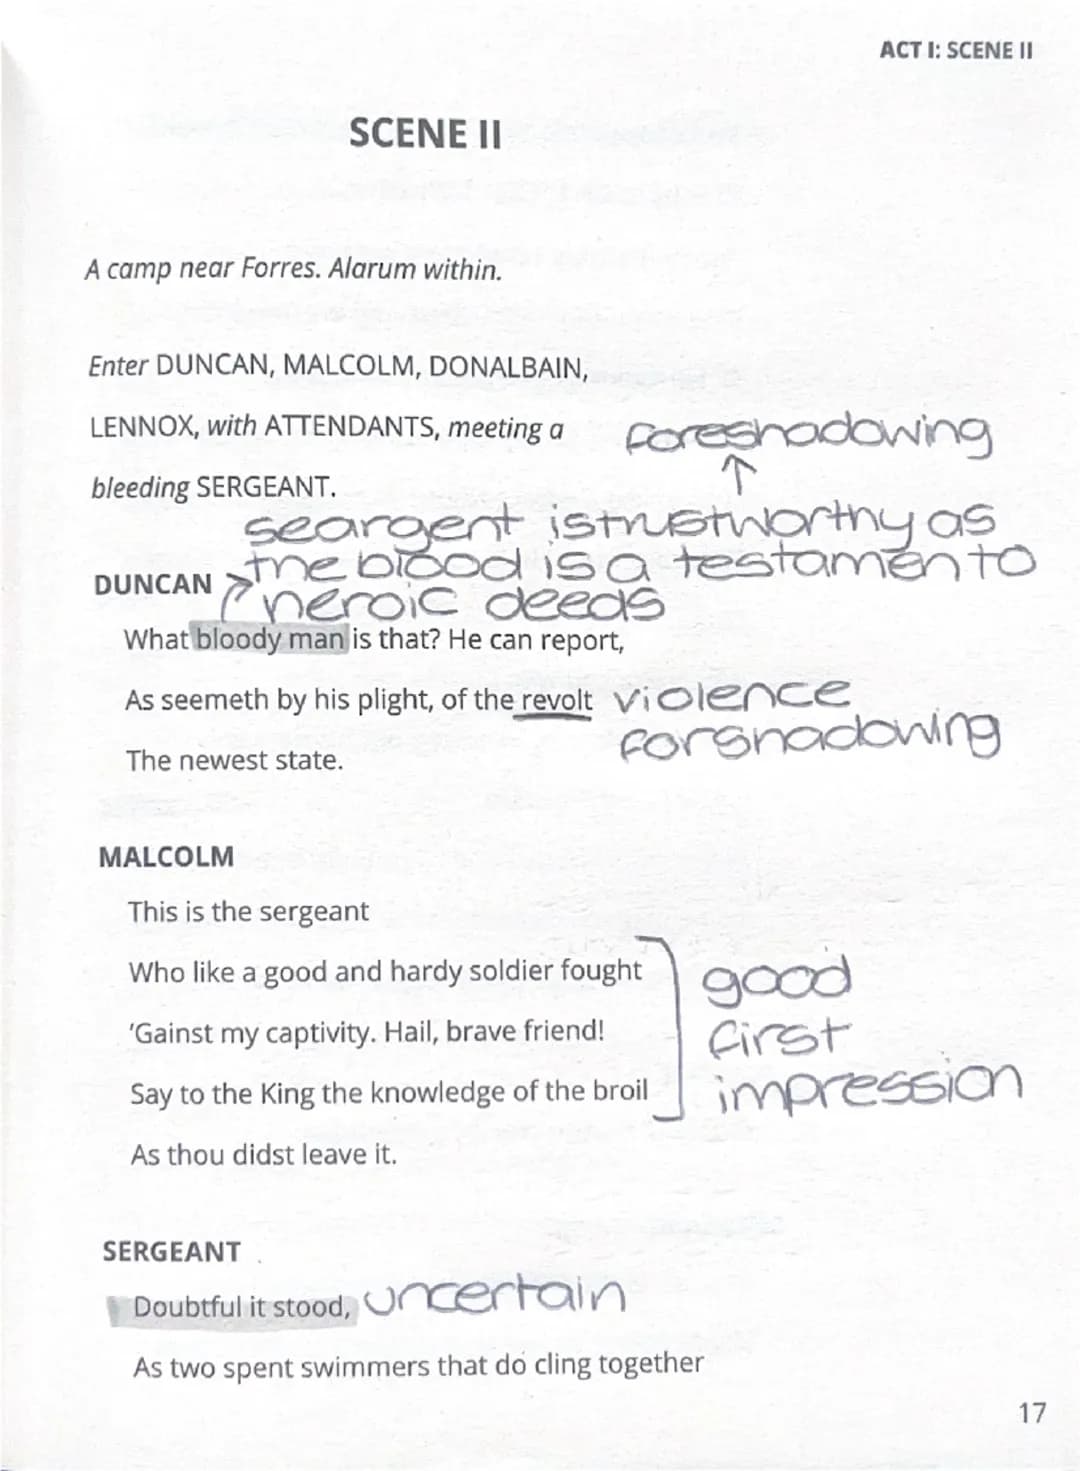 ACT I: SCENE II
SCENE II
A camp near Forres. Alarum within.
Enter DUNCAN, MALCOLM, DONALBAIN,
LENNOX, with ATTENDANTS, meeting a
foreshadowing
↑
bleeding SERGEANT.
seargent is trustworthy as
the blood is a testamen to
DUNCAN
heroic deeds
What bloody man is that? He can report,
As seemeth by his plight, of the revolt violence
forshadowing
The newest state.
MALCOLM
This is the sergeant
Who like a good and hardy soldier fought
good
'Gainst my captivity. Hail, brave friend!
first
Say to the King the knowledge of the broil
impression
As thou didst leave it.
SERGEANT
Doubtful it stood, uncertain
As two spent swimmers that do cling together
17